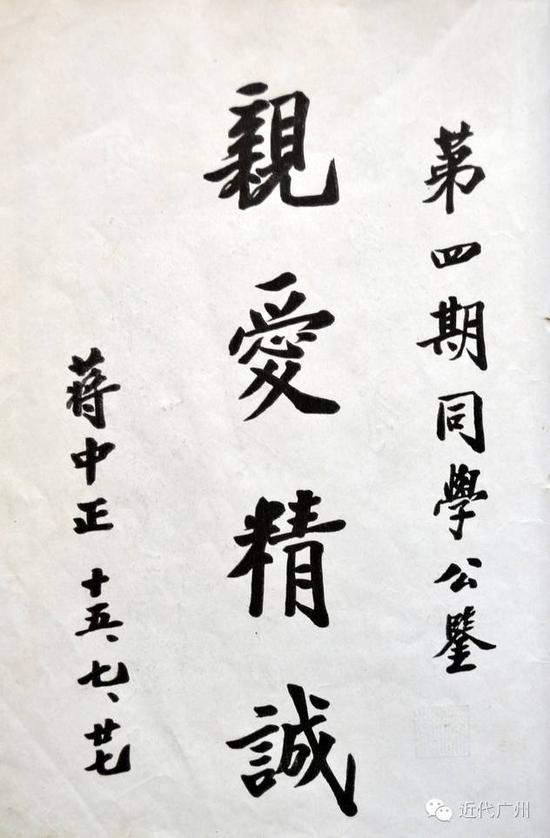 第四期同學公鑒
親愛精誠
蔣中正 十五、七、廿七
近代广州